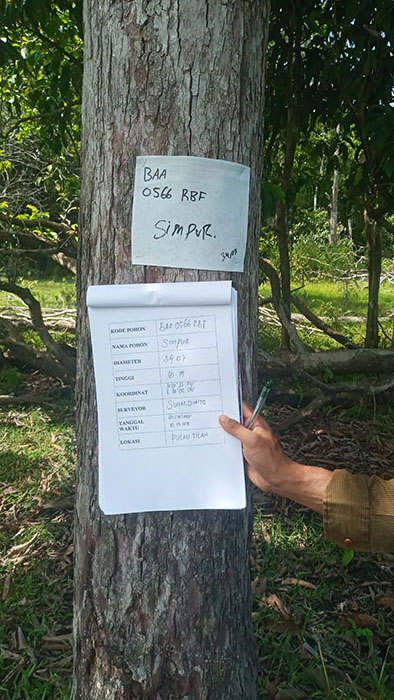 BAA
0566 RBF
SIMPUR.
KODE POHON BAA 0566 RBF
NAMA POHON SIMPUR
DIAMETER 34.07
TINGGI
KOORDINAT
SURVEYOR
TANGGAL
WAKTU
LOKASI PULAU TILAN